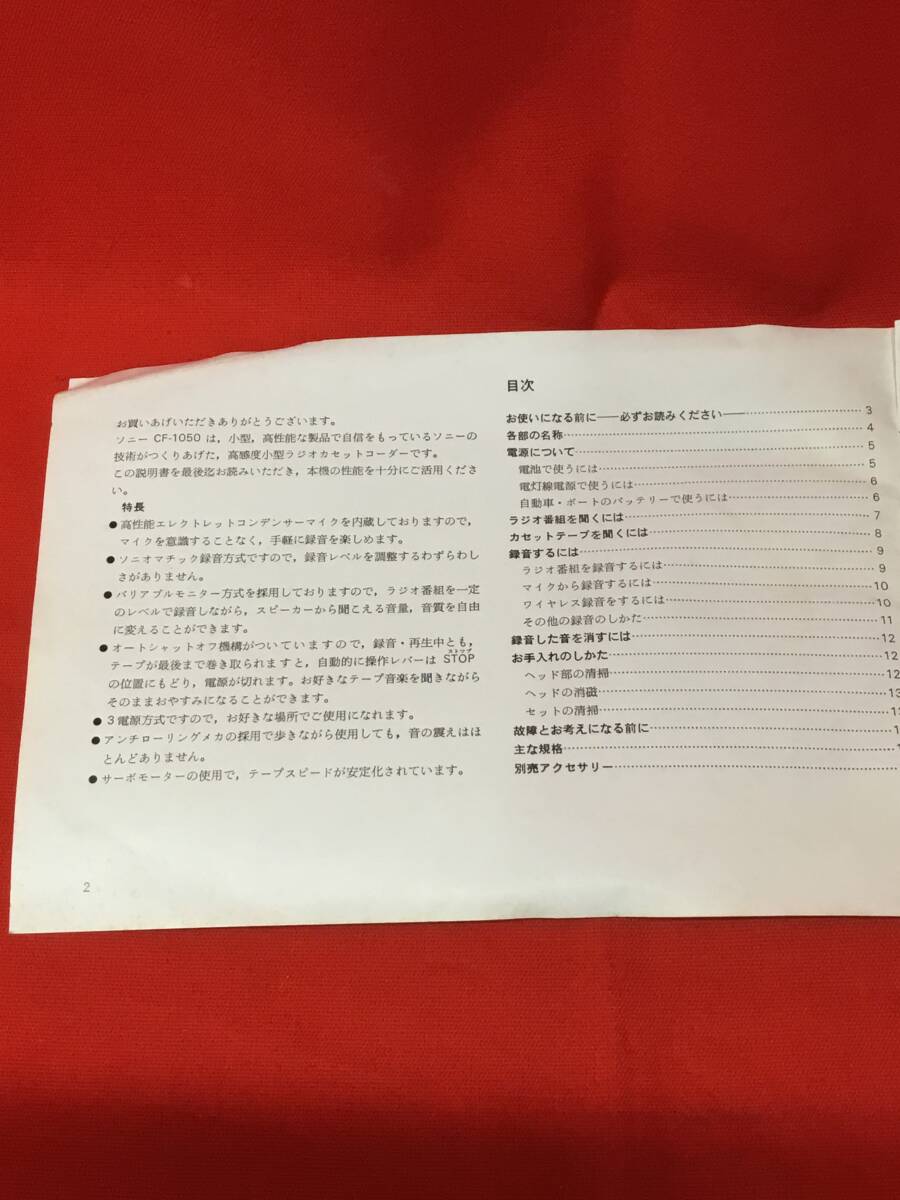 お買いあげいただきありがとうございます。
ソニー CF-1050 は，小型，高性能な製品で自信をもっているソニーの
技術がつくりあげた，高感度小型ラジオカセットコーダーです。
この説明書を最後迄お読みいただき，本機の性能を十分にご活用くださ
い。
特長
●高性能エレクトレットコンデンサーマイクを内蔵しておりますので，
マイクを意識することなく，手軽に録音を楽しめます。
●ソニオマチック録音方式ですので，録音レベルを調整するわずらわし
さがありません。
●バリアブルモニター方式を採用しておりますので，ラジオ番組を一定
のレベルで録音しながら，スピーカーから聞こえる音量，音質を自由
に変えることができます。
●オートシャットオフ機構がついていますので，録音・再生中とも，
ストップ
テープが最後まで巻き取られますと，自動的に操作レバーは STOP
の位置にもどり，電源が切れます。お好きなテープ音楽を聞きながら
そのままおやすみになることができます。
●3電源方式ですので，お好きな場所でご使用になれます。
●アンチローリングメカの採用で歩きながら使用しても，音の震えはほ
とんどありません。
●サーボモーターの使用で，テープスピードが安定化されています。
2
目次
お使いになる前に——必ずお読みください——……………3
各部の名称……………4
電源について……………5
電池で使うには……………5
電灯線電源で使うには……………6
自動車・ボートのバッテリーで使うには……………6
ラジオ番組を聞くには……………7
カセットテープを聞くには……………8
録音するには……………9
ラジオ番組を録音するには……………9
マイクから録音するには……………10
ワイヤレス録音をするには……………10
その他の録音のしかた……………11
録音した音を消すには……………12
お手入れのしかた……………12
ヘッド部の清掃……………12
ヘッドの消磁……………13
セットの清掃……………13
故障とお考えになる前に……………1
主な規格……………1
別売アクセサリー……………